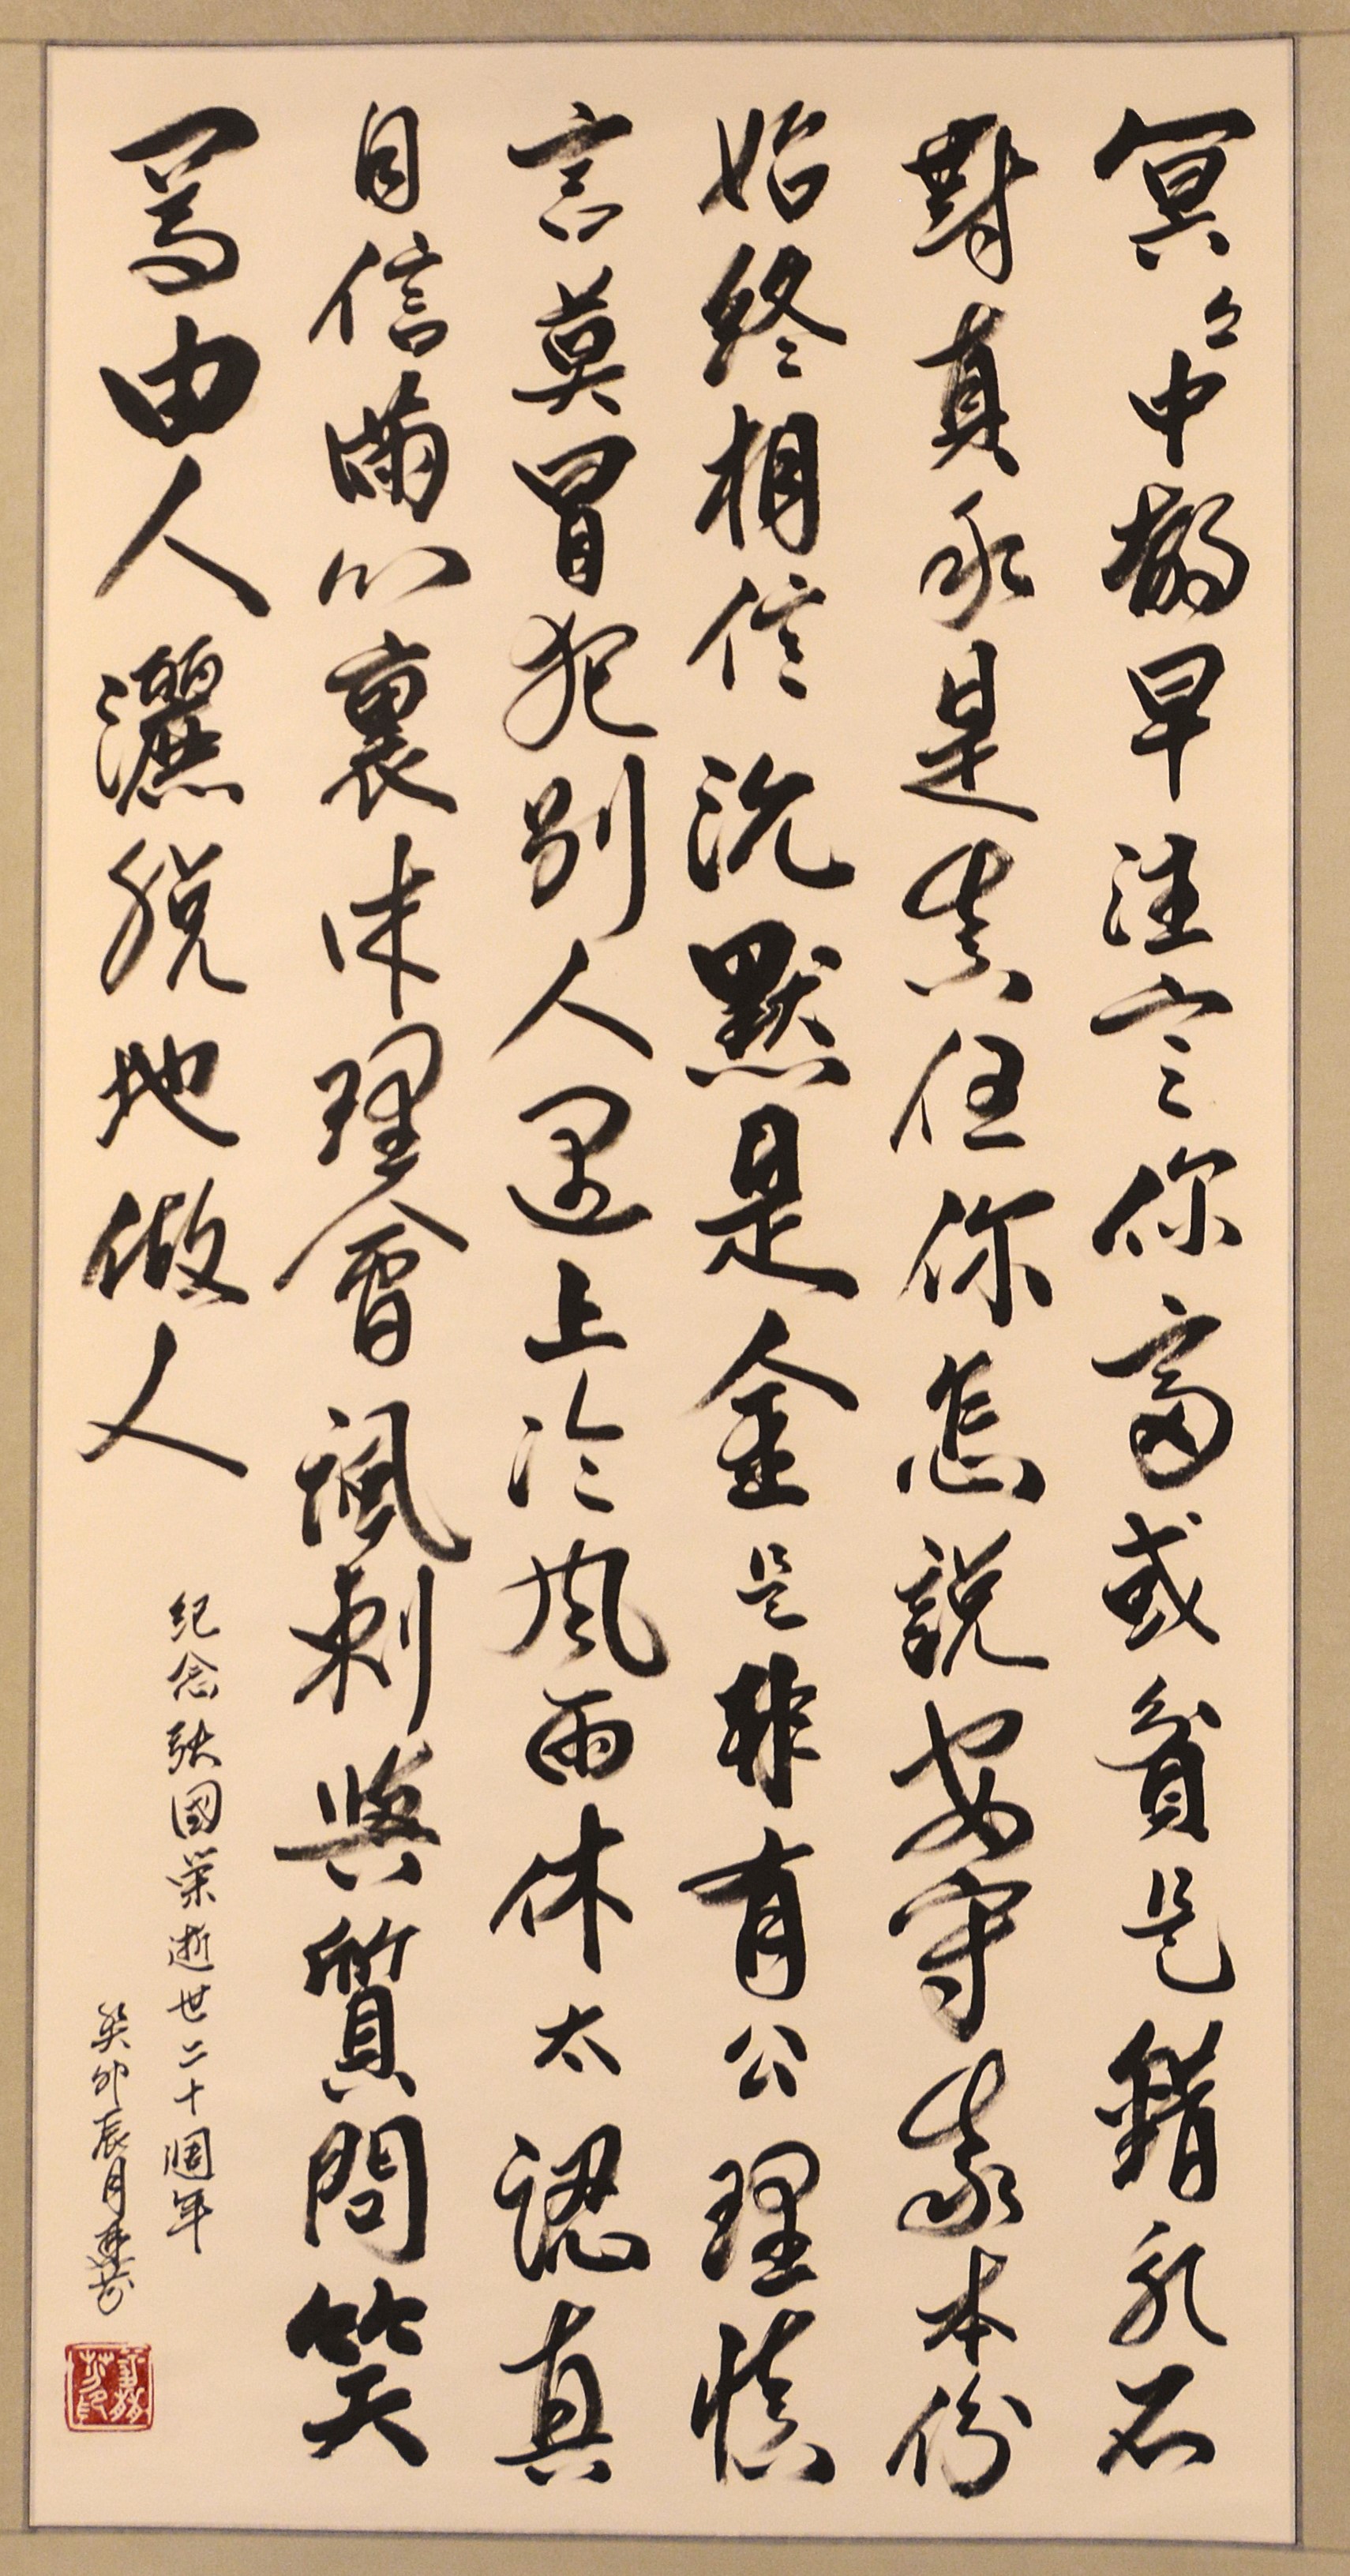 冥々中都早注定你富或貧是錯永不
對真永是真任你怎說安守我本份
始終相信沉默是金是非有公理慎
言莫冒犯別人遇上冷風雨休太認真
自信滿心裏休理會諷刺與質問笑
罵由人灑脫地做人
紀念張國榮逝世二十週年
癸卯辰月